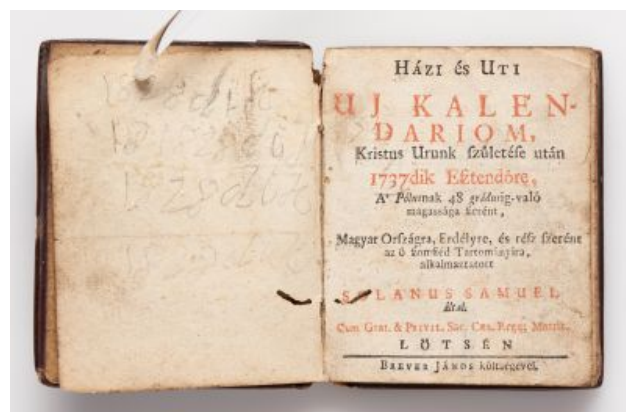 HÁZI és UTI
UJ KALEN-
DARIOM,
Kristus Urunk ſzületéſe után
1737dik Eſztendöre,
A' Pólusnak 48 gráduſig-való
magaſsága ſzerént,
Magyar Orſzágra, Erdélyre, és réſz ſzerént
az ö ſzomſzéd Tartományira,
alkalmaztatott
SOLANUS SAMUEL
által.
Cum Grat. & Privil. Sac. Cæs. Regiæ Majeſt.
LÖTSÉN
BREVER JÁNOS költségével.